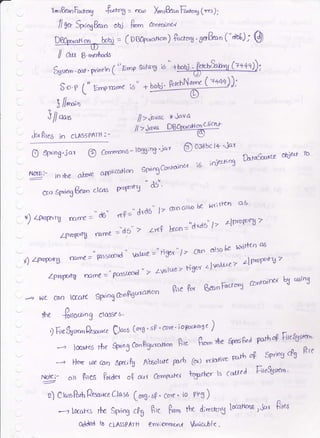 XmlBeanFactory factory = new XmlBeanFactory (res);
// go SpringBean obj from container
DBOperation bobj = (DBOperation) factory.getBean ("dob");
// call B.methods
System.out.println ("Emp Salary is "+bobj.fetchSalary (7499));
S.o.P ("Emp name is"+ bobj.fetchName (7499));
} //main
} // class
//> javac *.java
//> java DBOperationClient
Jar files in CLASSPATH :-
① Spring.jar ② Commons-logging.jar ③ ojdbc14.jar
Note:- in the above application SpringContainer is injecting DataSource object to
our Spring Bean class property "ds".
*) <property name="ds" ref="drds" /> can also be written as
<property name="ds"> <ref bean="drds" /> </property>
*) <property name="password" value="tiger" /> can also be written as
<property name="password"> <value> tiger </value> </property>
→ we can locate Spring Configuration file for BeanFactory container by using
the following classes:-
1) FileSystemResource Class (org.sf.core.io package)
→ locates the Spring Configuration file from the specified path of FileSystem.
→ Here we can specify Absolute path (or) relative path of Spring cfg file
Note:- all files folder of our Computer together is called FileSystem.
2) ClassPathResource Class (org.sf.core.io pkg)
→ locates the Spring cfg file from the directory locations, jar files
added to CLASSPATH environment Variable.